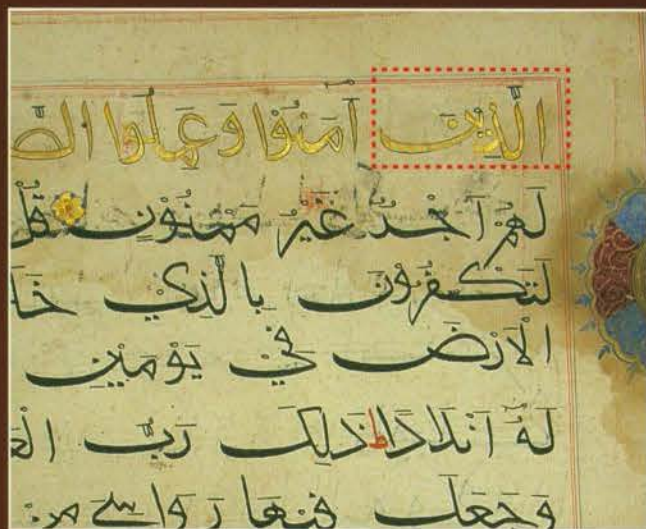 الَّذِينَ آمَنُوا وَعَمِلُوا
لَهُمْ أَجْرٌ غَيْرُ مَمْنُونٍ قُلْ
لَتَكْفُرُونَ بِالَّذِي
الْأَرْضَ فِي يَوْمَيْنِ
لَهُ أَنْدَادًا ط ذَلِكَ رَبُّ
وَجَعَلَ فِيهَا رَوَاسِيَ مِنْ